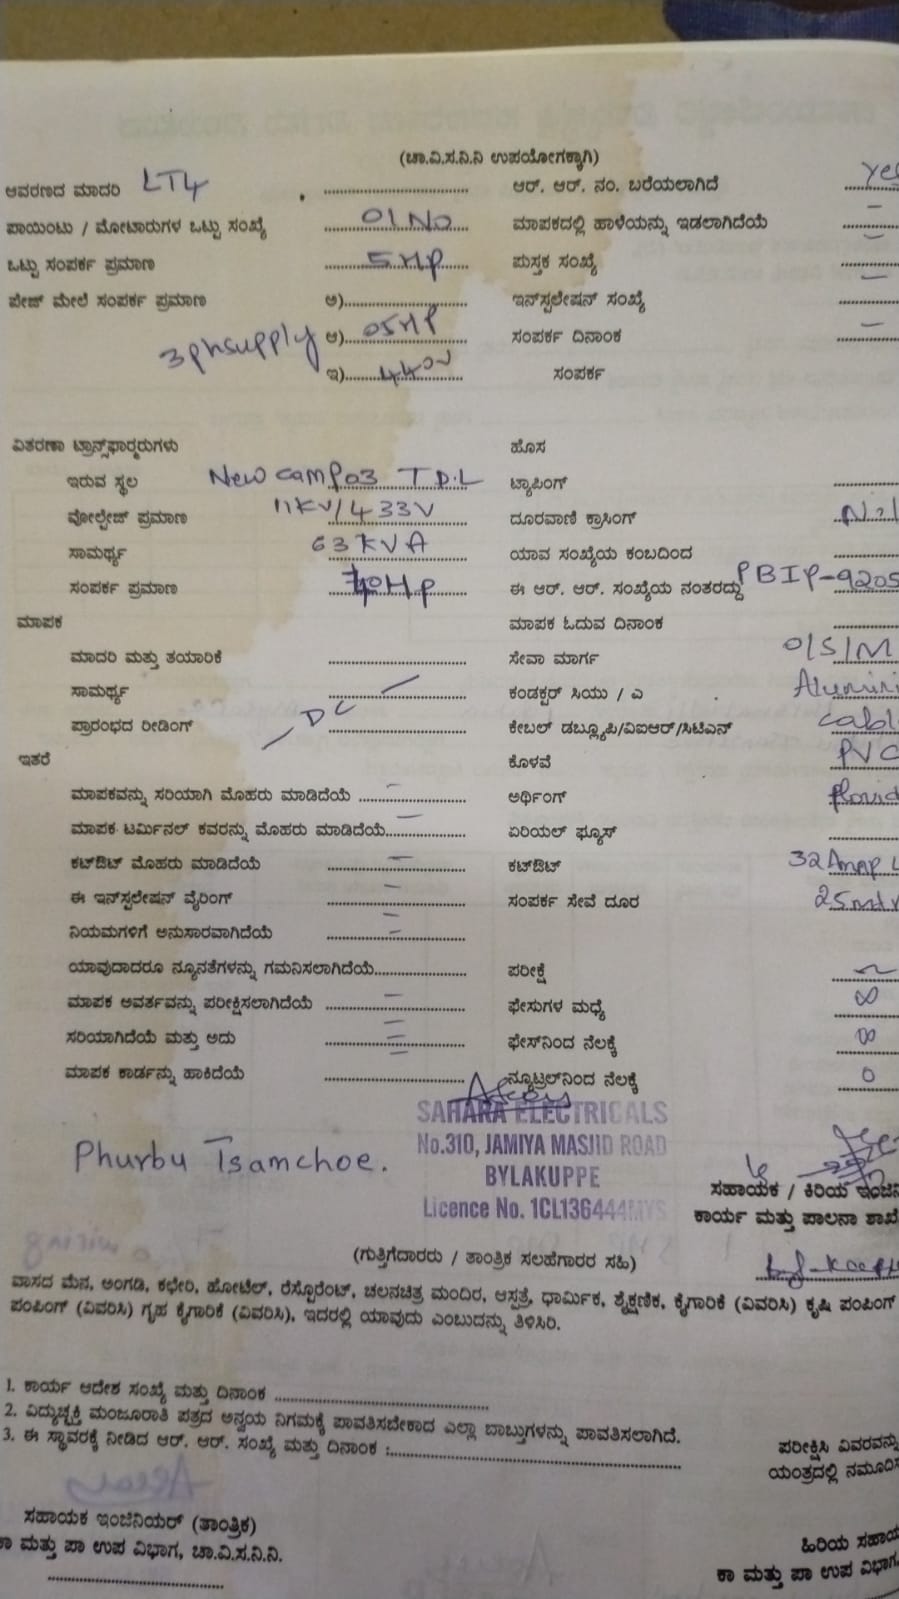 (ಚಾ.ವಿ.ಸ.ನಿ.ನಿ ಉಪಯೋಗಕ್ಕಾಗಿ)
ಆವರಣದ ಮಾದರಿ LT4 ಆರ್. ಆರ್. ನಂ. ಬರೆಯಲಾಗಿದೆ yes
ಪಾಯಿಂಟು / ಮೋಟಾರುಗಳ ಒಟ್ಟು ಸಂಖ್ಯೆ 01 No ಮಾಪಕದಲ್ಲಿ ಹಾಳೆಯನ್ನು ಇಡಲಾಗಿದೆಯೆ –
ಒಟ್ಟು ಸಂಪರ್ಕ ಪ್ರಮಾಣ 5 HP ಪುಸ್ತಕ ಸಂಖ್ಯೆ –
ಪೇಜ್ ಮೇಲೆ ಸಂಪರ್ಕ ಪ್ರಮಾಣ ಅ) ಇನ್‌ಸ್ಟಲೇಷನ್ ಸಂಖ್ಯೆ –
3 ph supply ಆ) 05 HP ಸಂಪರ್ಕ ದಿನಾಂಕ –
ಇ) 440V ಸಂಪರ್ಕ
ವಿತರಣಾ ಟ್ರಾನ್ಸ್‌ಫಾರ್ಮರುಗಳು ಹೊಸ
ಇರುವ ಸ್ಥಳ New camp 03 T D.L ಟ್ಯಾಪಿಂಗ್
ವೋಲ್ಟೇಜ್ ಪ್ರಮಾಣ 11KV/433V ದೂರವಾಣಿ ಕ್ರಾಸಿಂಗ್ Nil
ಸಾಮರ್ಥ್ಯ 63 KVA ಯಾವ ಸಂಖ್ಯೆಯ ಕಂಬದಿಂದ
ಸಂಪರ್ಕ ಪ್ರಮಾಣ HP ಈ ಆರ್. ಆರ್. ಸಂಖ್ಯೆಯ ನಂತರದ್ದು PBIP-9205
ಮಾಪಕ ಮಾಪಕ ಓದುವ ದಿನಾಂಕ
ಮಾದರಿ ಮತ್ತು ತಯಾರಿಕೆ ಸೇವಾ ಮಾರ್ಗ O/S/M
ಸಾಮರ್ಥ್ಯ ಕಂಡಕ್ಟರ್ ಸಿಯು / ಎ
ಪ್ರಾರಂಭದ ರೀಡಿಂಗ್ – DC – ಕೇಬಲ್ ಡಬ್ಲ್ಯೂಪಿ/ವಿಐಆರ್/ಸಿಟಿಎಸ್
ಇತರೆ ಕೊಳವೆ PVC
ಮಾಪಕವನ್ನು ಸರಿಯಾಗಿ ಮೊಹರು ಮಾಡಿದೆಯೆ – ಅರ್ಥಿಂಗ್
ಮಾಪಕ ಟರ್ಮಿನಲ್ ಕವರನ್ನು ಮೊಹರು ಮಾಡಿದೆಯೆ – ಏರಿಯಲ್ ಫ್ಯೂಸ್
ಕಟ್‌ಔಟ್ ಮೊಹರು ಮಾಡಿದೆಯೆ – ಕಟ್‌ಔಟ್ 32 Amp
ಈ ಇನ್‌ಸ್ಟಲೇಷನ್ ವೈರಿಂಗ್ – ಸಂಪರ್ಕ ಸೇವೆ ದೂರ 25 mtr
ನಿಯಮಗಳಿಗೆ ಅನುಸಾರವಾಗಿದೆಯೆ –
ಯಾವುದಾದರೂ ನ್ಯೂನತೆಗಳನ್ನು ಗಮನಿಸಲಾಗಿದೆಯೆ ಪರೀಕ್ಷೆ
ಮಾಪಕ ಅವರ್ತವನ್ನು ಪರೀಕ್ಷಿಸಲಾಗಿದೆಯೆ – ಫೇಸುಗಳ ಮಧ್ಯೆ ∞
ಸರಿಯಾಗಿದೆಯೆ ಮತ್ತು ಅದು – ಫೇಸ್‌ನಿಂದ ನೆಲಕ್ಕೆ ∞
ಮಾಪಕ ಕಾರ್ಡನ್ನು ಹಾಕಿದೆಯೆ ನ್ಯೂಟ್ರಲ್‌ನಿಂದ ನೆಲಕ್ಕೆ 0
SAHARA ELECTRICALS
No.310, JAMIYA MASJID ROAD
BYLAKUPPE
Licence No. 1CL136444MYS
Phurbu Tsamchoe.
ಸಹಾಯಕ / ಕಿರಿಯ ಇಂಜಿನಿ
ಕಾರ್ಯ ಮತ್ತು ಪಾಲನಾ ಶಾಖೆ
(ಗುತ್ತಿಗೆದಾರರು / ತಾಂತ್ರಿಕ ಸಲಹೆಗಾರರ ಸಹಿ)
ವಾಸದ ಮನೆ, ಅಂಗಡಿ, ಕಛೇರಿ, ಹೋಟೆಲ್, ರೆಸ್ಟೋರೆಂಟ್, ಚಲನಚಿತ್ರ ಮಂದಿರ, ಆಸ್ಪತ್ರೆ, ಧಾರ್ಮಿಕ, ಶೈಕ್ಷಣಿಕ, ಕೈಗಾರಿಕೆ (ವಿವರಿಸಿ) ಕೃಷಿ ಪಂಪಿಂಗ್
ಪಂಪಿಂಗ್ (ವಿವರಿಸಿ) ಗೃಹ ಕೈಗಾರಿಕೆ (ವಿವರಿಸಿ), ಇದರಲ್ಲಿ ಯಾವುದು ಎಂಬುದನ್ನು ತಿಳಿಸಿರಿ.
1. ಕಾರ್ಯ ಆದೇಶ ಸಂಖ್ಯೆ ಮತ್ತು ದಿನಾಂಕ
2. ವಿದ್ಯುಚ್ಛಕ್ತಿ ಮಂಜೂರಾತಿ ಪತ್ರದ ಅನ್ವಯ ನಿಗಮಕ್ಕೆ ಪಾವತಿಸಬೇಕಾದ ಎಲ್ಲಾ ಬಾಬ್ತುಗಳನ್ನು ಪಾವತಿಸಲಾಗಿದೆ.
3. ಈ ಸ್ಥಾವರಕ್ಕೆ ನೀಡಿದ ಆರ್. ಆರ್. ಸಂಖ್ಯೆ ಮತ್ತು ದಿನಾಂಕ :
ಪರೀಕ್ಷಿಸಿ ವಿವರವನ್ನು
ಯಂತ್ರದಲ್ಲಿ ನಮೂದಿಸ
ಸಹಾಯಕ ಇಂಜಿನಿಯರ್ (ತಾಂತ್ರಿಕ)
ಕಾ ಮತ್ತು ಪಾ ಉಪ ವಿಭಾಗ, ಚಾ.ವಿ.ಸ.ನಿ.ನಿ.
ಹಿರಿಯ ಸಹಾಯ
ಕಾ ಮತ್ತು ಪಾ ಉಪ ವಿಭಾಗ,